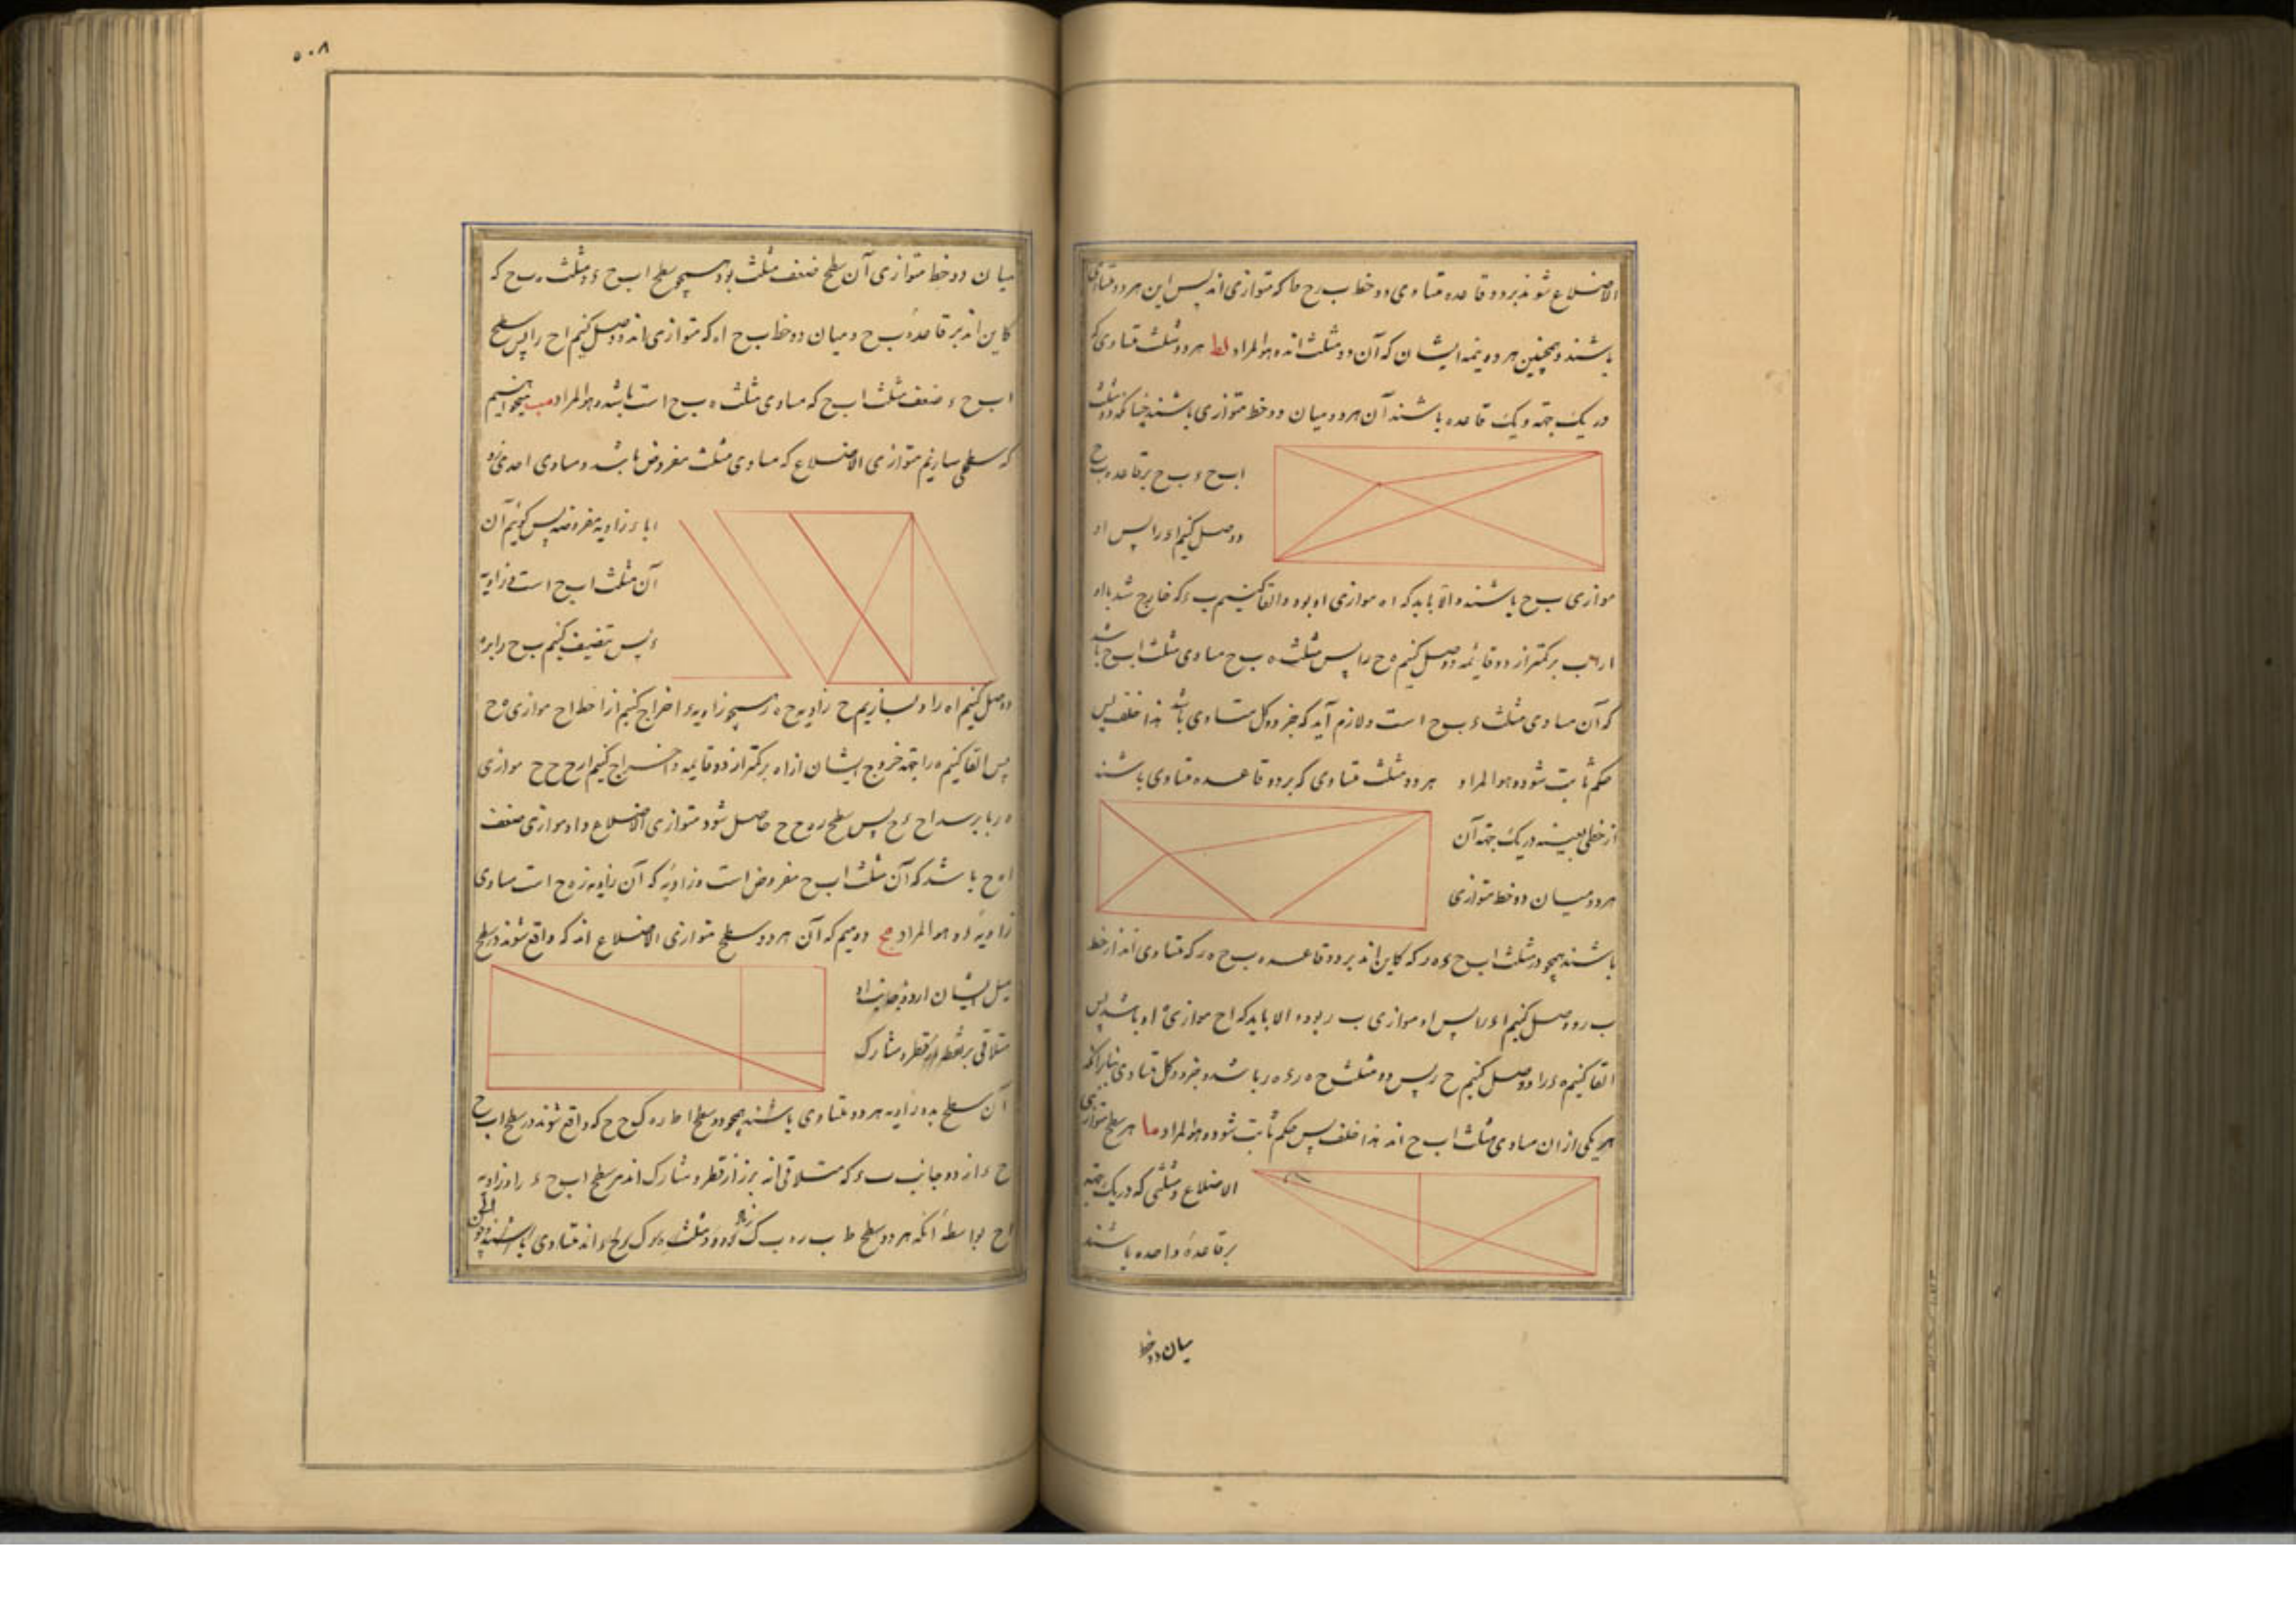 الاضلاع شوند بر دو قاعده متساوی و دو خط ب ح ط که متوازی اند پس این هر دو متساوی
باشند و همچنین هر دو نیمه ایشان که آن دو مثلث اند و هو المراد لط هر دو مثلث متساوی که
در یک جهة و یک قاعده باشند آن هر دو میان دو خط متوازی باشند چنانکه دو مثلث
اب ح ء ب ح بر قاعده ب ح
و وصل کنیم اء را پس اء
موازی ب ح باشند و الا باید که اه موازی او بود و القا کنیم ب ء که خارج شد با اه
از اب بر کمتر از دو قائمه و وصل کنیم ه ح را پس مثلث ه ب ح مساوی مثلث اب ح باشد
که آن مساوی مثلث ء ب ح است و لازم آید که جزو و کل متساوی باشد هذا خلف پس
حکم ثابت شود و هو المراد هر دو مثلث متساوی که بر دو قاعده متساوی باشند
از خطی بعینه در یک جهة آن
هر دو میان دو خط متوازی
باشند همچو دو مثلث اب ح ء ه ر که کاین اند بر دو قاعده ب ح ه ر که متساوی اند از خط
ب ر و وصل کنیم اء را پس او موازی ب ر بود و الا باید که اح موازی او باشد پس
القا کنیم ه ء را و وصل کنیم ح ر پس دو مثلث ح ه ر ء ه ر باشد و جزو و کل متساوی بنابر آنکه
هر یکی از ان مساوی مثلث اب ح اند هذا خلف پس حکم ثابت شود و هو المراد ما هر سطح متوازی
الاضلاع و مثلثی که در یک جهة
بر قاعدهٔ واحده باشند
میان دو خط
۵۰۸
میان دو خط متوازی آن سطح ضعف مثلث بود همچو سطح اب ح ء و مثلث ه ب ح که
کاین اند بر قاعدهٔ ب ح و میان دو خط ب ح اه که متوازی اند و وصل کنیم اح را پس سطح
اب ح ء ضعف مثلث اب ح که مساوی مثلث ه ب ح است باشد و هو المراد مب میخواهیم
که سطحی سازیم متوازی الاضلاع که مساوی مثلث مفروض باشد و مساوی احدی زو
ایا ء زاویه مفروضه پس گوئیم آن
آن مثلث اب ح است و زاویه
ء پس تنصیف کنیم ب ح را بر ه
و وصل کنیم اه را و بسازیم ح زاویه ح ه ر همچو زاویه ء و اخراج کنیم از ا خط اح موازی ه ح
پس القا کنیم ه ر را جهة خروج ایشان از اه بر کمتر از دو قایمه و اخراج کنیم از ح ح ح موازی
ه ر تا برسد اح ء ح پس سطح ر ه ح ح حاصل شود متوازی الاضلاع و او موازی ضعف
اه ح باشد که آن مثلث اب ح مفروض است و زاویهٔ که آن زاویه ر ه ح است مساوی
زاویهٔ ء و هو المراد مح دو میم که آن هر دو سطح متوازی الاضلاع اند که واقع شوند در سطح
مثل ایشان از دو جانب او
متلاقی بر نقطه از قطر و مشارک
آن سطح بدو زاویه هر دو متساوی باشند همچو دو سطح ا ط ر ه ک ح ح که واقع شوند در سطح اب ح
ح ء از دو جانب ب ء که متلاقی اند بر ز از قطر و مشارک اند مر سطح اب ح ء را و زاویه
اح بواسطهٔ آنکه هر دو سطح ط ب ر ه ب ک